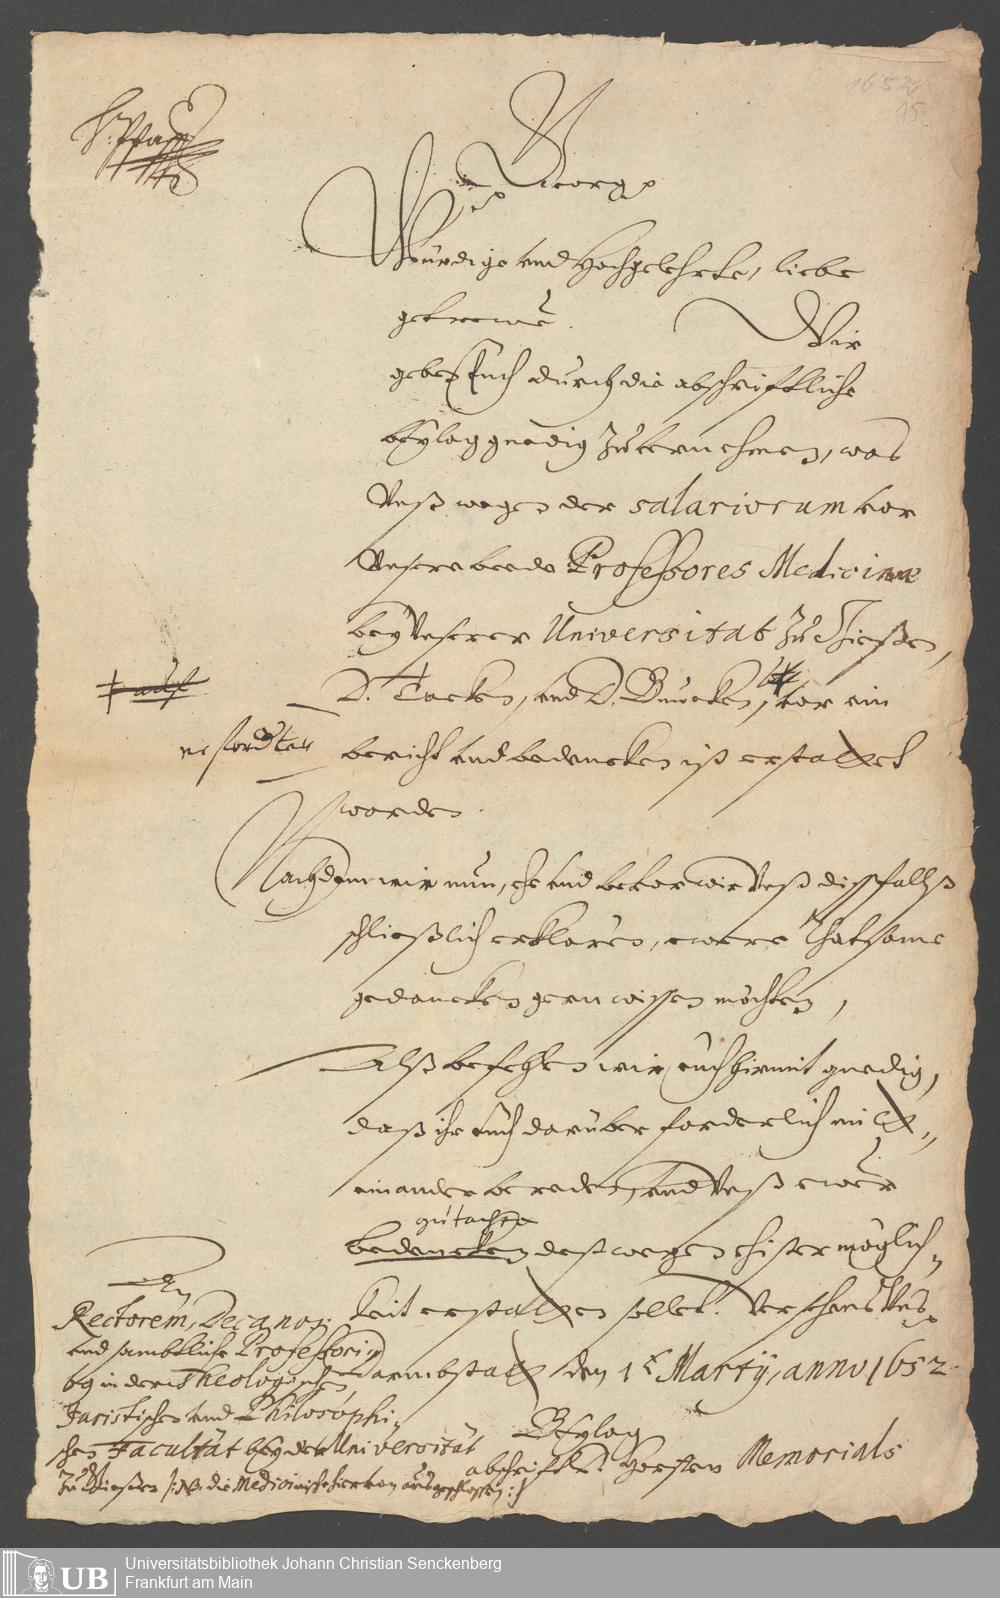 1652
15.
Georg p
Würdige vnd Hochgelehrte, liebe
getrewe.
Wir
geben Euch durch die abschrifftliche
beylag gnedig Zuvernehmen, was
Vnß wegen der salariorum vor
Vnsere beede Professores Medicinæ
bey Vnserer Universitat Zu Gießen,
D. Tacken, vnd D. vor ein
erforderter
bericht vnd bedencken ist erstattet
worden.
Nachdem wir nun, ehe vnd bevor wir Vnß dißfallß
schließlich erklären, ewere
gedancken gern wissen möchten,
Alß befehlen wir euch hiermit gnedig,
daß ihr Euch darüber forderlich mitt
einander bereden, vnd Vnß ewer
gutachten
bedencken deßwegen ehister möglich-
keit erstatten sollet. Versehens Vnß
Darmbstatt den 1t Martij, anno 1652
Beylag
abschrifft Memorials
An
Rectorem, Decanos
vnd sambtliche Professorn
in der Theologischen,
Juristischen vnd Philosophi-
schen Facultät bey der Universität
Zu Gießen /: NB. die Medicinische hiervon ausgeschlossen :/